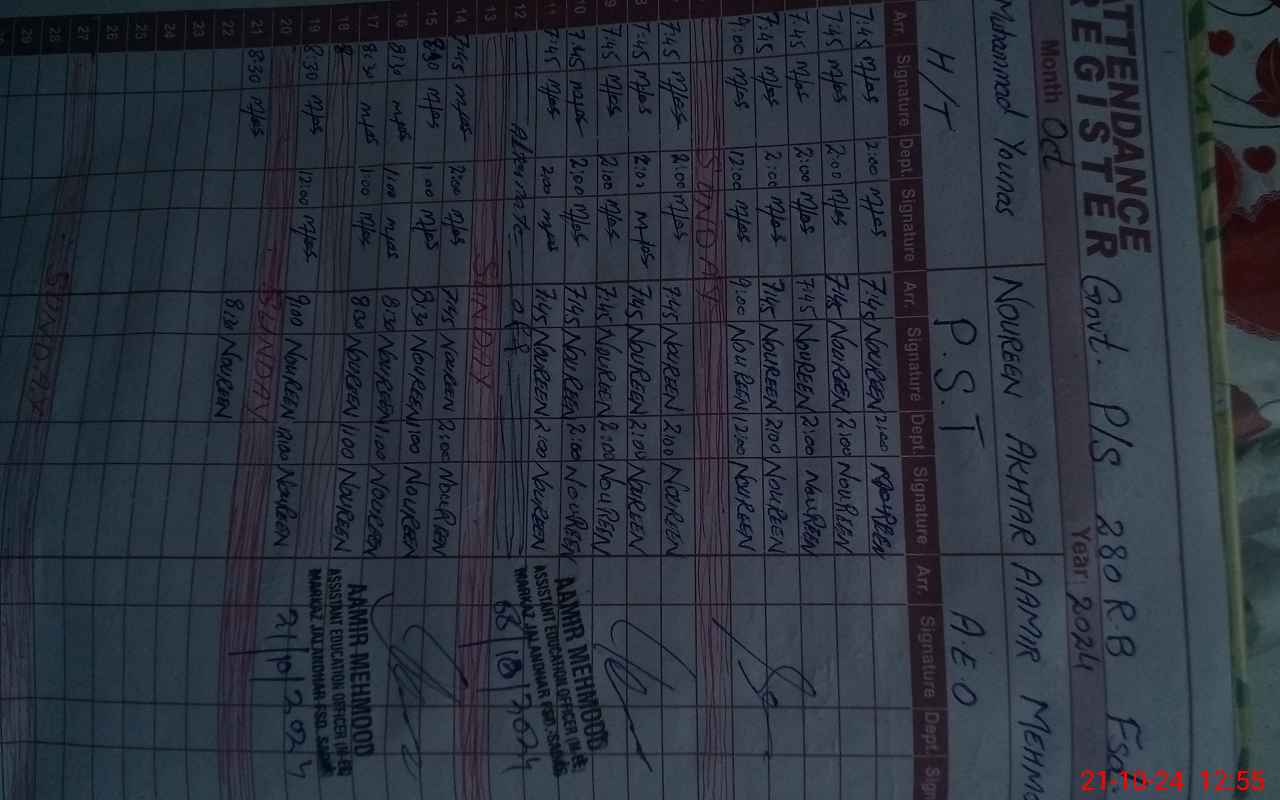 ATTENDANCE
REGISTER Govt. P/S 280 R.B Fsd.
Month Oct Year: 2024
Muhammad Younas NOUREEN AKHTAR AAMIR MEHMO
H/T P.S.T A E O
Arr. Signature Dept. Signature Arr. Signature Dept. Signature Arr. Signature Dept. Sign
7:45 2:00 7:45 NOUREEN 2:00 NOUREEN
7:45 2:00 7:45 NOUREEN 2:00 NOUREEN
7:45 2:00 7:45 NOUREEN 2:00 NOUREEN
7:45 2:00 7:45 NOUREEN 2:00 NOUREEN
9:00 12:00 9:00 NOUREEN 12:00 NOUREEN
SUNDAY
7:45 2:00 7:45 NOUREEN 2:00 NOUREEN
8 7:45 2:00 7:45 NOUREEN 2:00 NOUREEN
9 7:45 2:00 7:45 NOUREEN 2:00 NOUREEN
10 7:45 2:00 7:45 NOUREEN 2:00 NOUREEN
11 7:45 2:00 7:45 NOUREEN 2:00 NOUREEN
12 Alternate off
13 SUNDAY
14 7:45 2:00 7:45 NOUREEN 2:00 NOUREEN
15 8:30 1:00 8:30 NOUREEN 1:00 NOUREEN
16 8:30 1:00 8:30 NOUREEN 1:00 NOUREEN
17 8:30 1:00 8:30 NOUREEN 1:00 NOUREEN
18 8
19 8:30 12:00 9:00 NOUREEN 12:00 NOUREEN
20 SUNDAY
21 8:30 8:30 NOUREEN
22
23
24
25
26
27 SUNDAY
28
29
AAMIR MEHMOOD
ASSISTANT EDUCATION OFFICER (M-EE)
MARKAZ JALANDHAR FSD. SADAR
08/10/2024
AAMIR MEHMOOD
ASSISTANT EDUCATION OFFICER (M-EE)
MARKAZ JALANDHAR FSD. SADAR
21/10/2024
21-10-24 12:55